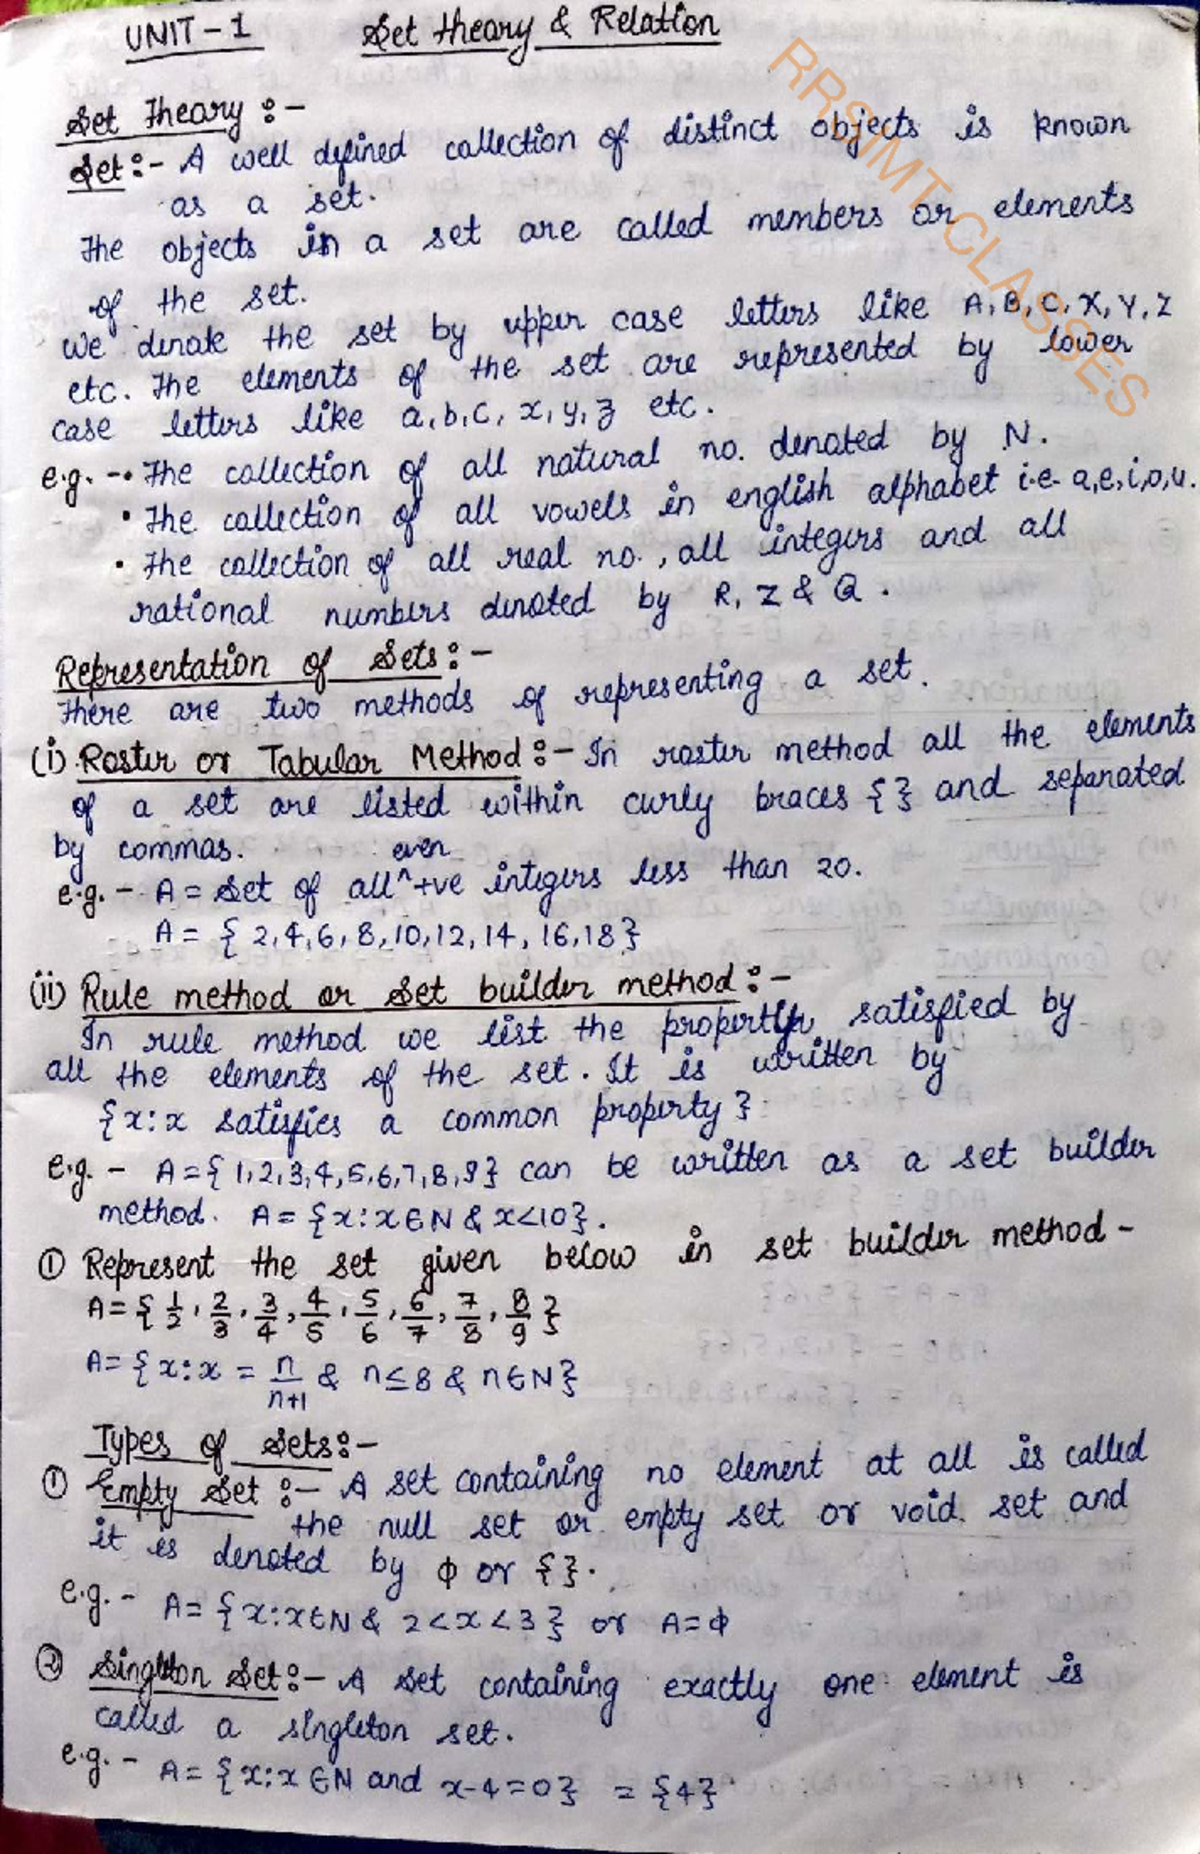 UNIT-1 Set theory & Relation
Set Theory :-
Set:- A well defined collection of distinct objects is known
as a set.
The objects in a set are called members or elements
of the set.
we denote the set by upper case letters like A, B, C, X, Y, Z
etc. The elements of the set are represented by lower
case letters like a, b, c, x, y, z etc.
e.g. -• The collection of all natural no. denoted by N.
• The collection of all vowels in english alphabet i.e- a,e,i,o,u.
• The collection of all real no., all integers and all
rational numbers denoted by R, Z & Q.
Representation of Sets:-
There are two methods of representing a set.
(i) Roster or Tabular Method:- In roster method all the elements
of a set are listed within curly braces { } and separated
by commas.
e.g. - A = Set of all ^even +ve integers less than 20.
A = { 2, 4, 6, 8, 10, 12, 14, 16, 18 }
(ii) Rule method or Set builder method:-
In rule method we list the property satisfied by
all the elements of the set. It is written by
{x:x satisfies a common property}
e.g. - A = { 1, 2, 3, 4, 5, 6, 7, 8, 9 } can be written as a set builder
method. A = {x:x∈N & x<10}.
① Represent the set given below in set builder method -
A = { 1/2, 2/3, 3/4, 4/5, 5/6, 6/7, 7/8, 8/9 }
A = { x:x = n/n+1 & n≤8 & n∈N}
Types of Sets:-
① Empty Set :- A set containing no element at all is called
the null set or empty set or void set and
it is denoted by ϕ or { }.
e.g. - A = { x:x∈N & 2<x<3 } or A=ϕ
② Singleton Set:- A set containing exactly one element is
called a singleton set.
e.g. - A = { x:x∈N and x-4=0} = {4}
RRSIMT CLASSES